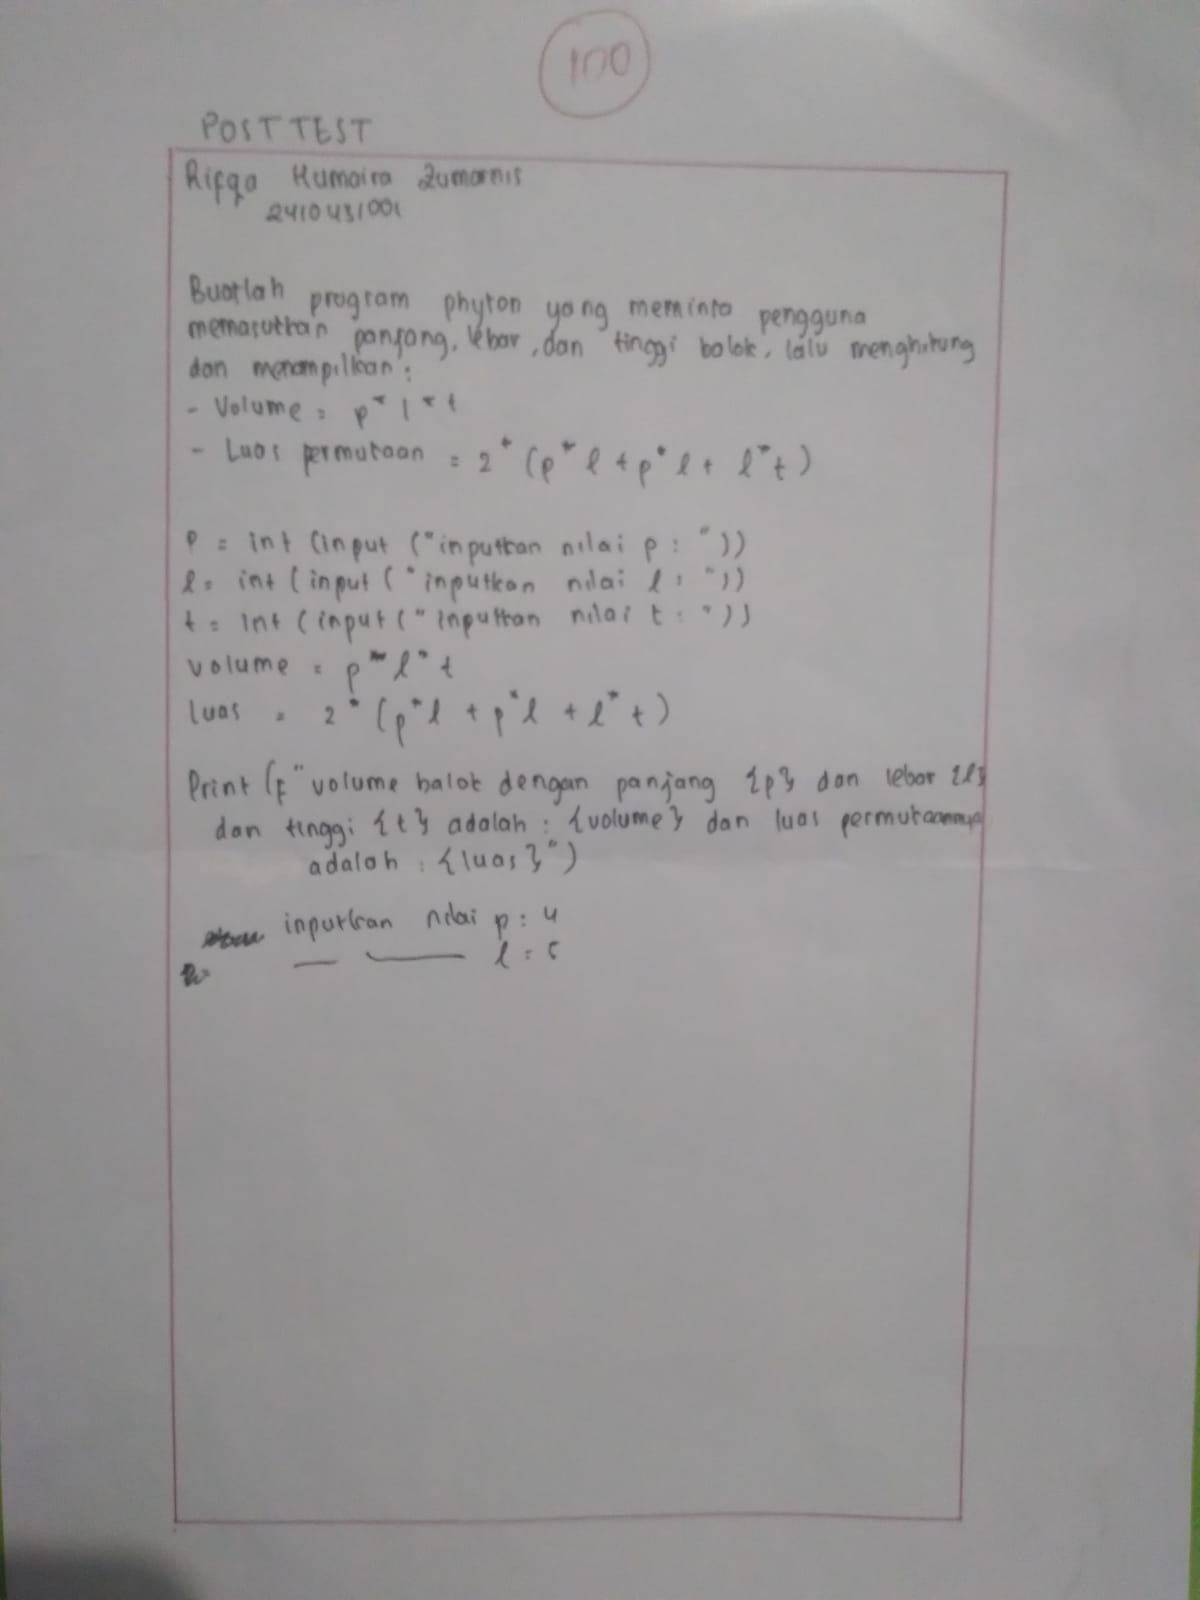 100
POST TEST
Rifqa Humaira Zumarnis
2410431001
Buatlah program phyton yang meminta pengguna
memasukkan panjang, lebar, dan tinggi balok, lalu menghitung
dan menampilkan:
- Volume = p * l * t
- Luas permukaan = 2 * (p * l + p * l + l * t)
p = int (input ("inputkan nilai p : "))
l = int (input ("inputkan nilai l : "))
t = int (input ("inputkan nilai t : "))
volume = p * l * t
luas = 2 * (p * l + p * l + l * t)
Print (f "volume balok dengan panjang {p} dan lebar {l}
dan tinggi {t} adalah : {volume} dan luas permukaannya
adalah : {luas}")
inputkan nilai p : 4
l : 5